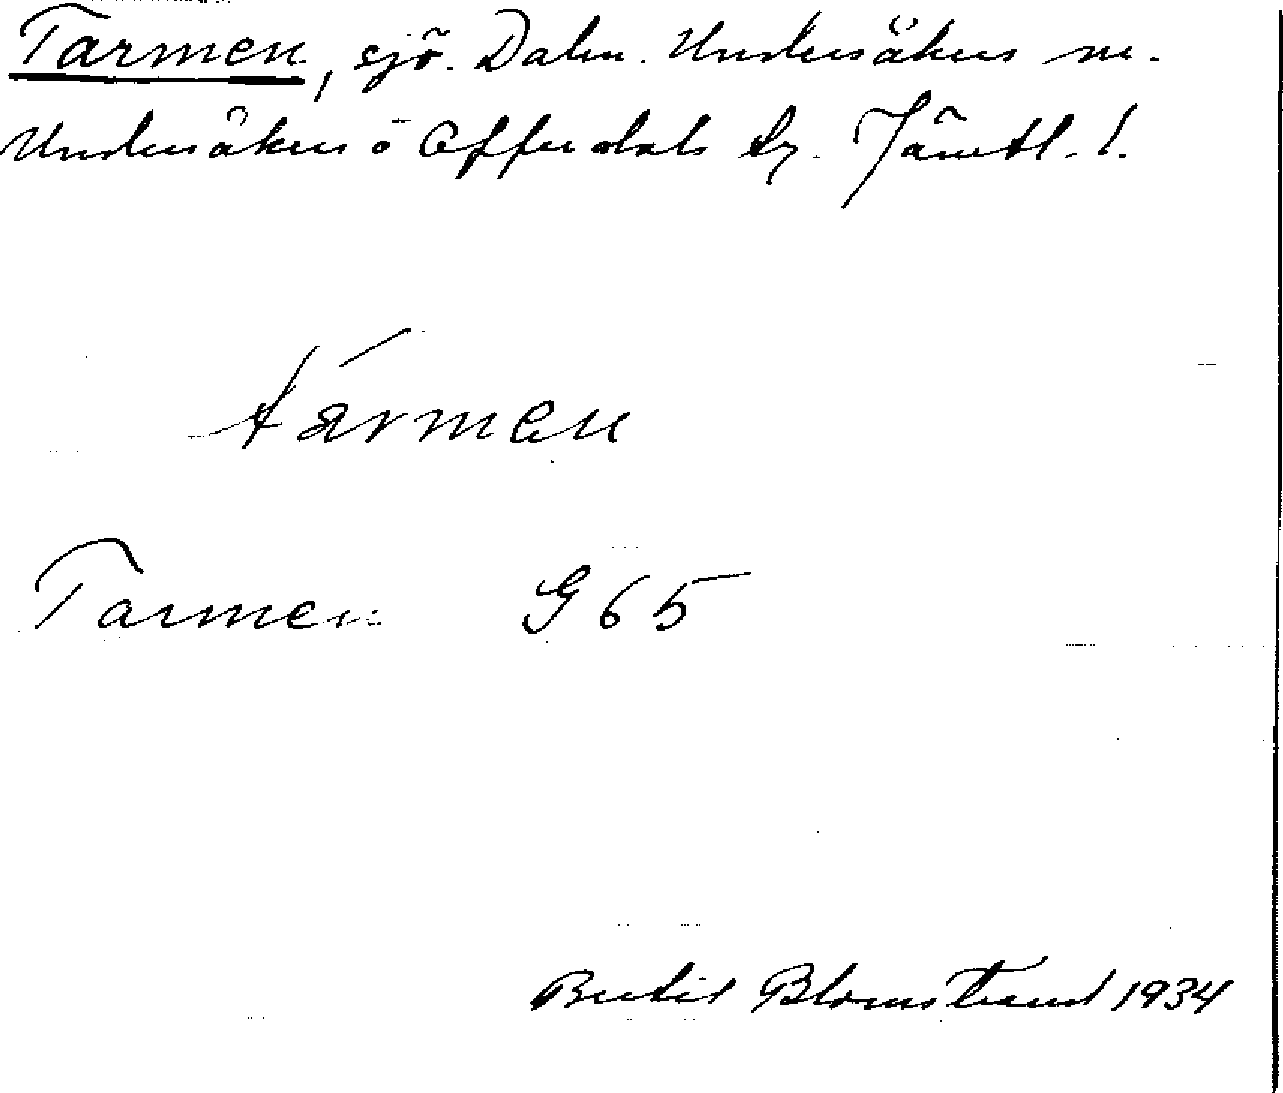 Tarmen, sjö. Dalen. Undersåkers sn.
Undersåkers o Offerdals tg. Jämtl. l.
tármen
Tarmen G 65
Bertil Blomstrand 1934